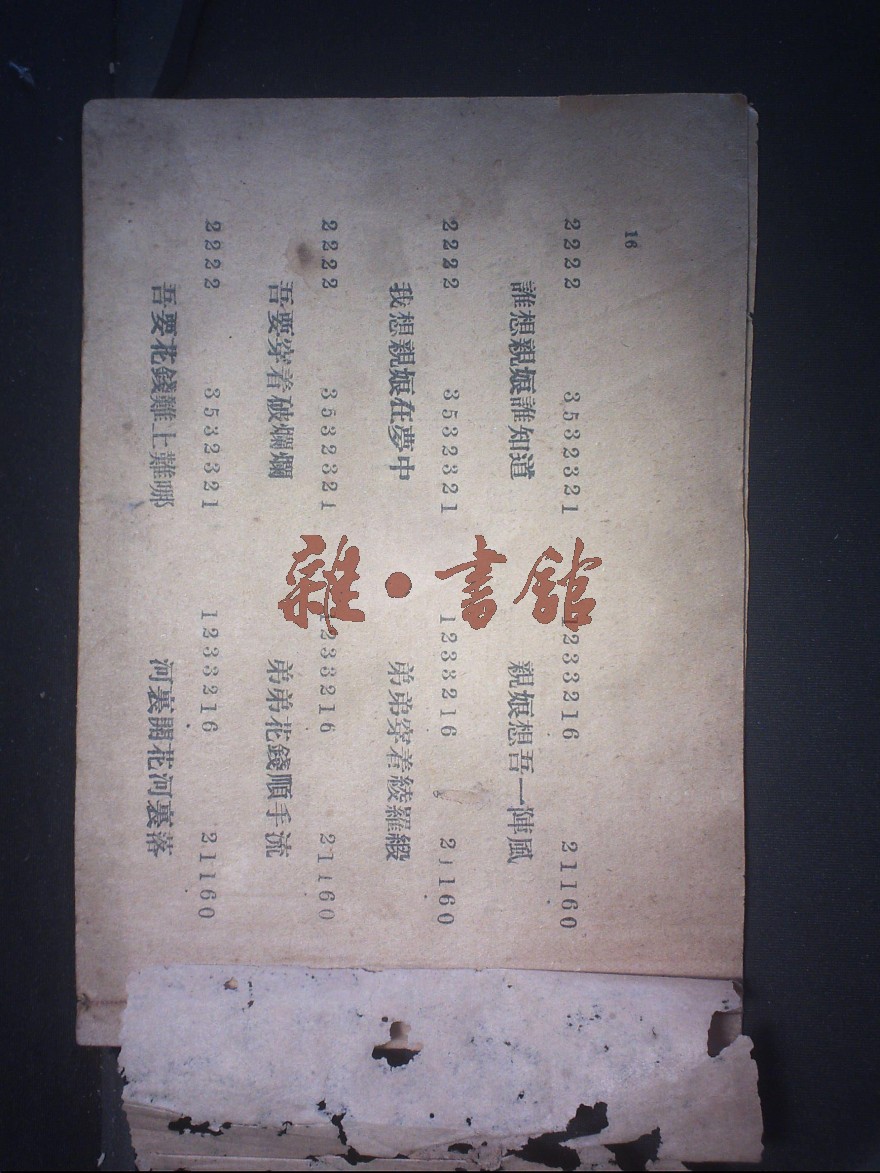 16
2222 3532321 1233216 21160
誰想親娘誰知道 親娘想吾一陣風
2222 3532321 1233216 21160
我想親娘在夢中 弟弟穿着綾羅緞
2222 3532321 1233216 21160
吾要穿着破爛爛 弟弟花錢順手流
2222 3532321 1233216 21160
吾要花錢難上難哪 河裏開花河裏落
雜·書館